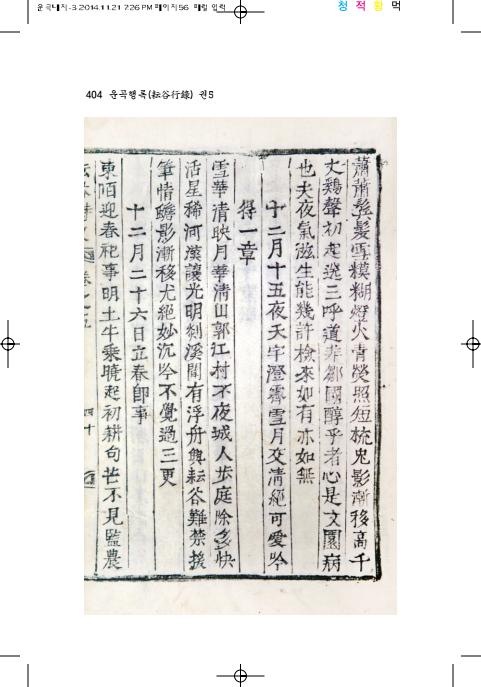 운곡내지-3 2014.11.21 7:26 PM 페이지56 매킬 입력
청 적 황 먹
404 운곡행록(耘谷行錄) 권5
蕭蕭鬓髮雪糢糊燈火靑熒照短梳鬼影漸移高千
丈鷄聲初起送三呼道非鄒國醇乎者心是文園病
也夫夜氣滋生能幾許檢來如有亦如無
十二月十五夜天宇澄霽雪月交淸絶可愛吟
得一章
雪華淸映月華淸山郭江村不夜城人步庭除多快
活星稀河漢讓光明剡溪聞有浮舟興耘谷難禁援
筆情蟾影漸移尤絶妙沉吟不覺過三更
十二月二十六日立春卽事
東陌迎春祀事明土牛乘曉起初耕句芒不見監農
四十